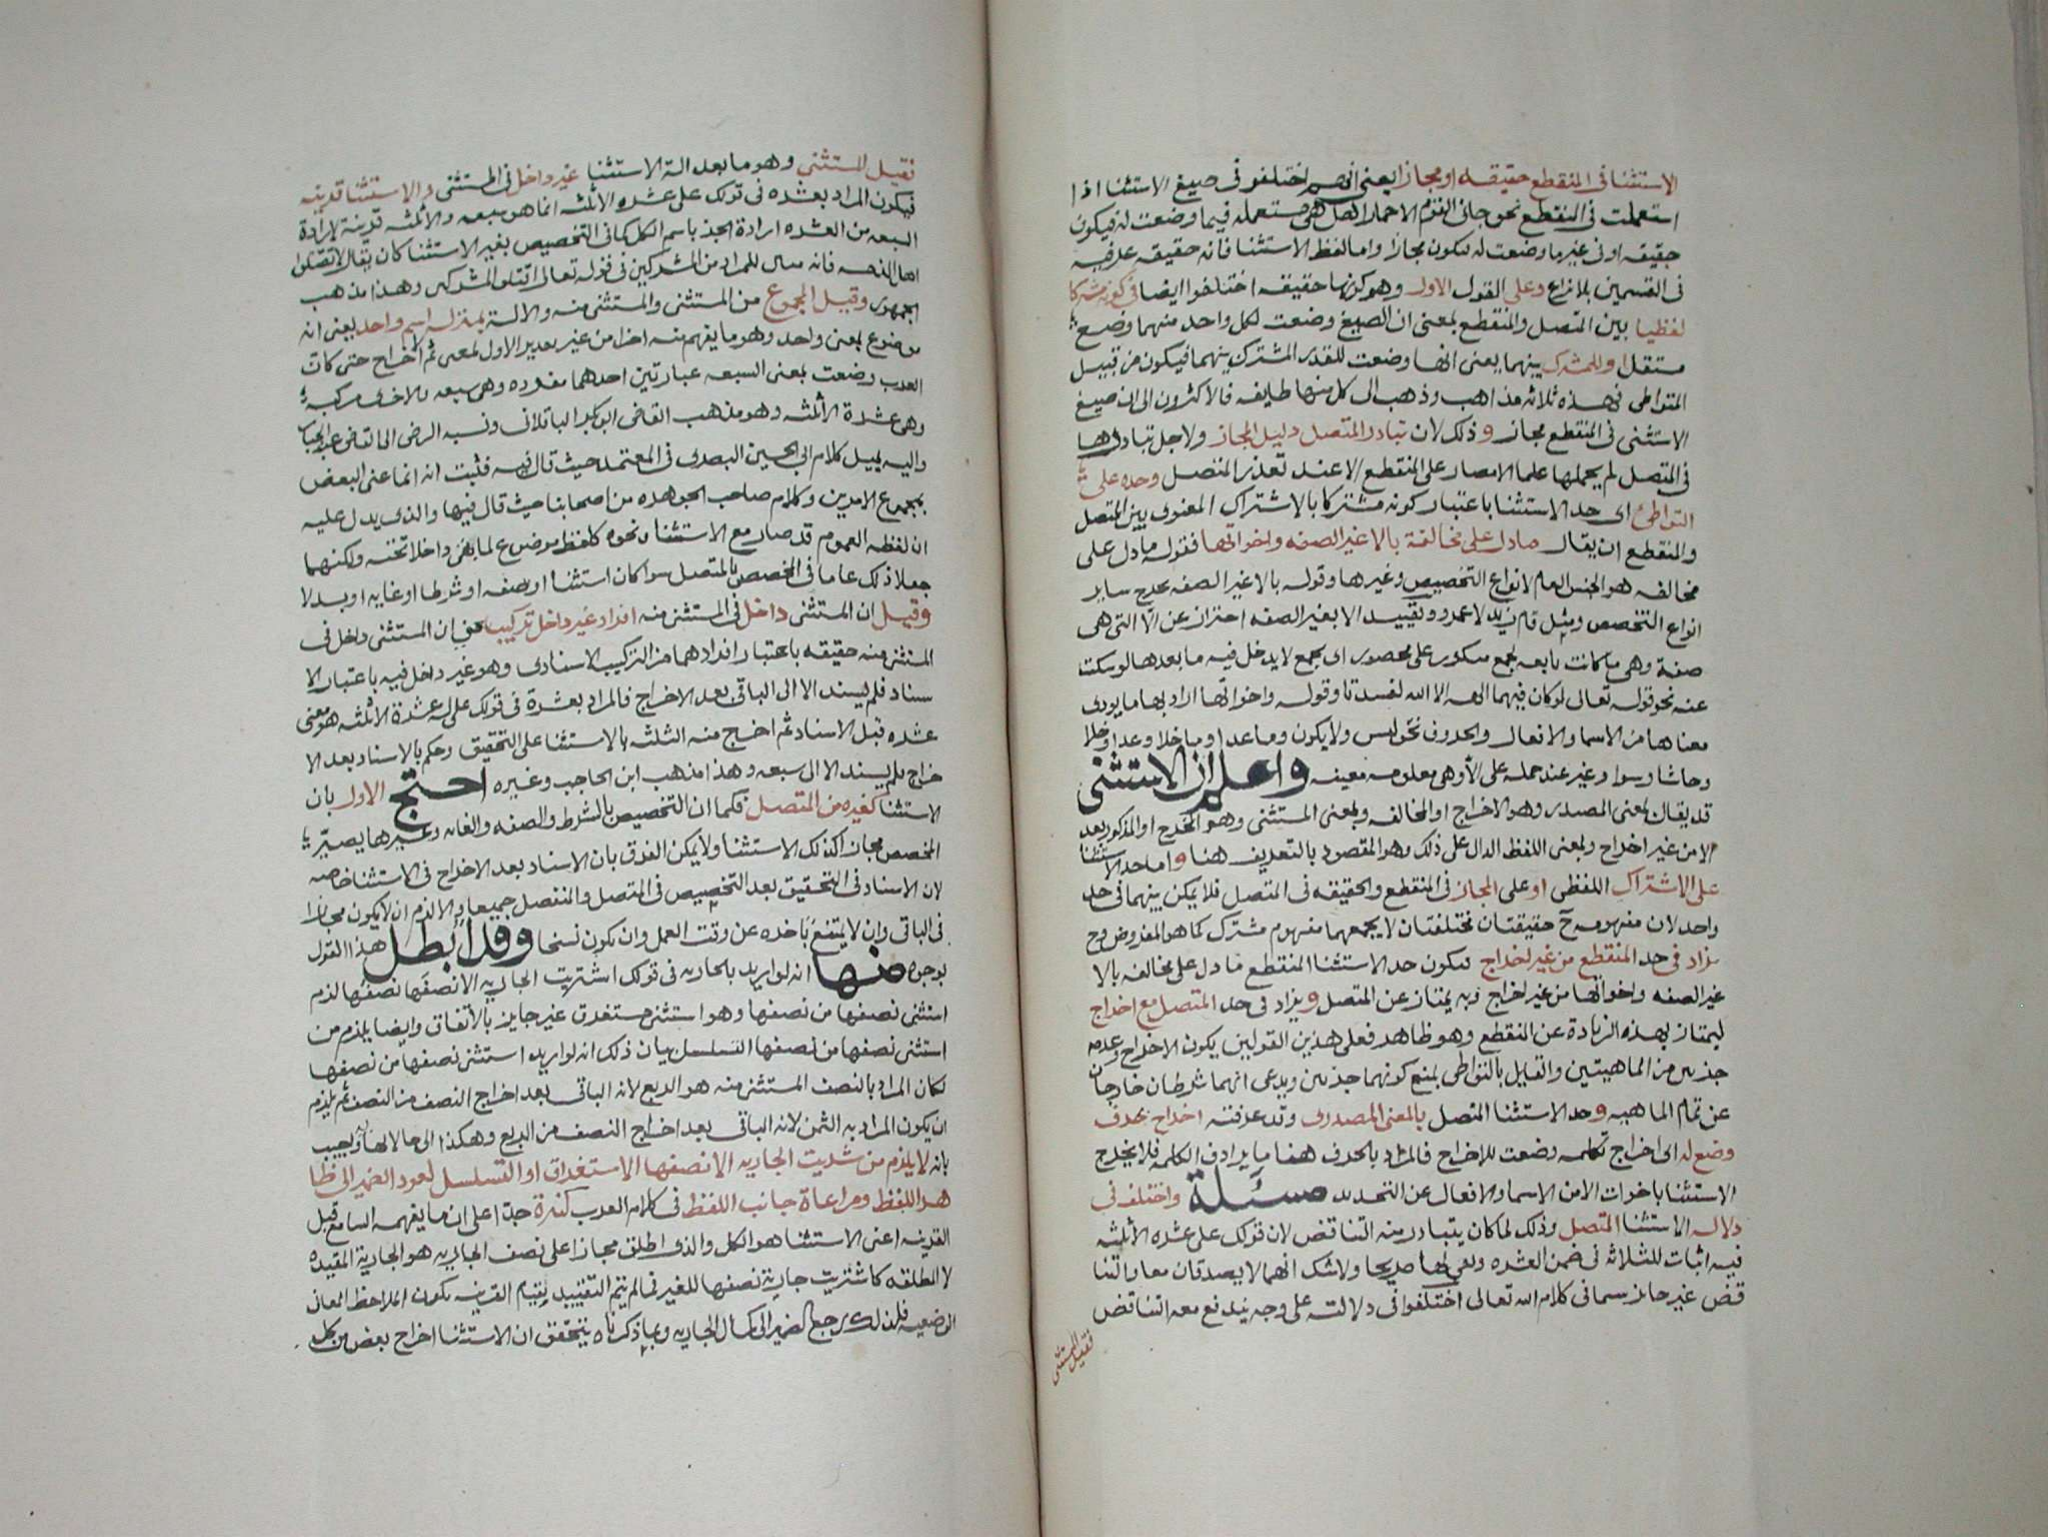 الاستثنا فى المنقطع حقيقه او مجاز يعنى انهم اختلفو فى صيغ الاستثنا اذا
استعملت فى المنقطع نحو جانى القوم الا حمارا هل هى مستعمله فيما وضعت له فيكون
حقيقه او فى غير ما وضعت له فيكون مجازا واما لفظ الاستثنا فانه حقيقه عرفيه
فى القسمين بلا نزاع وعلى القول الاول وهو كونها حقيقه اختلفوا ايضا فى كونه مشتركا
لفظيا بين المتصل والمنقطع بمعنى ان الصيغ وضعت لكل واحد منهما وضع
مستقل او للمشترك بينهما يعنى انها وضعت للقدر المشترك بينهما فيكون من قبيل
المتواطى فهذه ثلاثه مذاهب وذهب الى كل منها طايفه فالاكثرون الى ان صيغ
الاستثنى فى المنقطع مجاز وذلك لان تبادر المتصل دليل المجاز ولاجل تبادرها
فى المتصل لم يحملها علما الامصار على المنقطع الا عند تعذر المتصل وحده على
التواطئ اى حد الاستثنا باعتبار كونه مشتركا بالاشتراك المعنوى بين المتصل
والمنقطع ان يقال مادل على مخالفة بالا غير الصفه واخواتها فقوله مادل على
مخالفه هو الجنس العام لانواع التخصيص وغيرها وقوله بالا غير الصفه يخرج ساير
انواع التخصص ومثل قام زيد لا عمرو وتقييد الا بغير الصفه احتراز عن الا التى هى
صفة وهى ما كانت تابعه لجمع منكور غير محصور اى جمع لا يدخل فيه ما بعدها لو سكت
عنه نحو قوله تعالى لو كان فيهما الهه الا الله لفسدتا وقوله واخواتها اراد بها ما يودى
معناها من الاسما والافعال والحروف نحو ليس ولا يكون وما عدا وما خلا وعدا وخلا
وحاشا وسوا وغير عند حمله على الا وهى معلومه معينه واعلم ان الاستثنى
قد يقال بمعنى المصدر وهو الاخراج او المخالفه وبمعنى المستثنى وهو المخرج او المذكور بعد
الا من غير اخراج وبمعنى اللفظ الدال على ذلك وهو المقصود بالتعريف هنا واما حد الاستثنا
على الاشتراك اللفظى او على المجاز فى المنقطع والحقيقه فى المتصل فلا يمكن بينهما فى حد
واحد لان مفهومه ح حقيقتان مختلفتان لا يجمعهما مفهوم مشترك كما هو المفروض وح
يزاد فى حد المنقطع من غير اخراج فيكون حد الاستثنا المنقطع ما دل على مخالفه بالا
غير الصفه واخواتها من غير اخراج وبه يمتاز عن المتصل ويزاد فى حد المتصل مع اخراج
ليمتاز بهذه الزيادة عن المنقطع وهو ظاهر فعلى هذين القولين يكون الاخراج وعدمه
جزئين من الماهيتين والقايل بالتواطى يمنع كونهما جزئين ويدعى انهما شرطان خارجان
عن تمام الماهيه وحد الاستثنا المتصل بالمعنى المصدرى وقد عرفته اخراج بحرف
وضع له اى اخراج بكلمه وضعت للاخراج فالمراد بالحرف هنا ما يرادف الكلمه فلا يخرج
الاستثنا باخوات الا من الاسما والافعال عن التحديد مسئلة واختلف فى
دلاله الاستثنا المتصل وذلك لما كان يتبادر منه التناقض لان قولك على عشره الا ثلثه
فيه اثبات للثلاثه فى ضمن العشره ونفى لها صريحا ولا شك انهما لا يصدقان معا والتنا
قض غير جايز سيما فى كلام الله تعالى اختلفوا فى دلالته على وجه يندفع معه التناقض
فقيل المستثنى
فقيل المستثنى وهو ما بعد الة الاستثنا غير داخل فى المستثنى والاستثنا قرينه
فيكون المراد بعشره فى قولك على عشره الا ثلثه انما هو سبعه والا ثلثه قرينة لارادة
السبعه من العشره ارادة الجزء باسم الكل كما فى التخصيص بغير الاستثنا كان يقال لا تقتلوا
اهل الذمه فانه مبين للمراد من المشركين فى قوله تعالى اقتلوا المشركين وهذا مذهب
الجمهور وقيل المجموع من المستثنى والمستثنى منه والالة بمنزله اسم واحد يعنى انه
موضوع بمعنى واحد وهو ما يفهم منه اخرا من غير تقدير الاول لمعنى ثم اخراج حتى كان
العرب وضعت بمعنى السبعه عبارتين احدهما مفرده وهى سبعه والاخرى مركبه
وهى عشرة الا ثلثه وهو مذهب القاضى ابو بكر الباقلانى ونسبه الرضى الى القاضى عبد الجبار
واليه يميل كلام ابى الحسين البصرى فى المعتمد حيث قال فيه فثبت انه انما عنى البعض
بمجموع الامرين وكلام صاحب الجوهره من اصحابنا حيث قال فيها والذى يدل عليه
ان لفظه العموم قد صار مع الاستثنا ونحوه كلفظ موضوع لما بقى داخلا تحته ولكنهما
جعلا ذلك عاما فى المخصص بالمتصل سوا كان استثنا او صفه او شرطا او غايه او بدلا
وقيل ان المستثنى داخل فى المستثنى منه افراد غير داخل تركيب يعنى ان المستثنى داخل فى
المستثنى منه حقيقه باعتبار افرادهما من التركيب الاسنادى وهو غير داخل فيه باعتبار الا
سناد فلم يسند الا الى الباقى بعد الاخراج فالمراد بعشرة فى قولك على له عشرة الا ثلثه هو معنى
عشره قبل الاسناد ثم اخرج منه الثلثه بالاستثنا على التحقيق وحكم بالاسناد بعد الا
خراج فلم يسند الا الى سبعه وهذا مذهب ابن الحاجب وغيره احتج الاول بان
الاستثنا كغيره من المتصل فكما ان التخصيص بالشرط والصفه والغايه وغيرها يصير
المخصص مجازا كذلك الاستثنا ولا يمكن الفرق بان الاسناد بعد الاخراج فى الاستثنا خاصه
لان الاسناد فى التحقيق بعد التخصيص فى المتصل والمنفصل جميعا والا لزم ان لا يكون مجازا
فى الباقى وان لا يمتنع تاخره عن وقت العمل وان يكون نسخا وقد ابطل هذا القول
بوجوه منها انه لو اريد بالجاريه فى قولك اشتريت الجاريه الا نصفها نصفها لزم
استثنى نصفها من نصفها وهو استثنى مستغرق غير جايز بالاتفاق وايضا يلزم من
استثنى نصفها من نصفها التسلسل بيان ذلك انه لو اريد استثنى نصفها من نصفها
لكان المراد بالنصف المستثنى منه هو الربع لانه الباقى بعد اخراج النصف من النصف ثم يلزم
ان يكون المراد به الثمن لانه الباقى بعد اخراج النصف من الربع وهكذا الى ما لا نهايه ويجيب
بانه لا يلزم من شريت الجاريه الا نصفها الاستغراق او التسلسل لعود الضمير الى ظا
هر اللفظ ومراعاة جانب اللفظ فى كلام العرب كثيرة جدا على ان ما يفهمه السامع قبل
القرينه اعنى الاستثنا هو الكل والذى اطلق مجازا على نصف الجاريه هو الجارية المقيده
لا المطلقه كاشتريت جارية نصفها للغير فما لم يتم التقييد بتمام القرينه يكون الملاحظ المعانى
الوضعيه فلذلك رجع الضمير الى كمال الجاريه وبما ذكرناه يتحقق ان الاستثنا اخراج بعض من كل